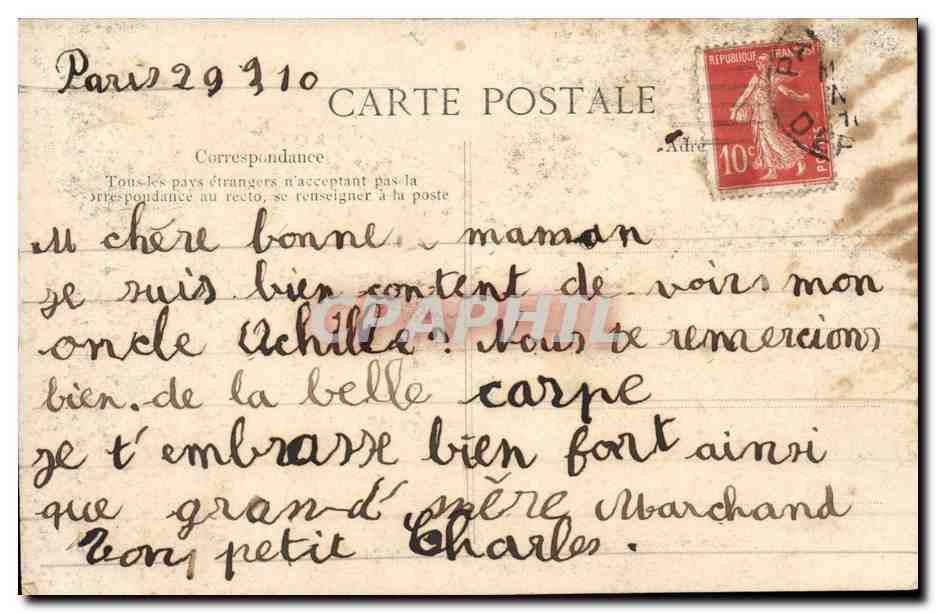 Paris 29 9 10
CARTE POSTALE
REPUBLIQUE FRANC
10c
Adre
Correspondance
Tous les pays étrangers n'acceptant pas la
orrespondance au recto, se renseigner à la poste
M chère bonne maman
je suis bien content de voirs mon
oncle Achille. Nous te remercions
bien de la belle carpe
je t'embrasse bien fort ainsi
que grand'mère Marchand
Ton petit Charles.
CPAPHIL